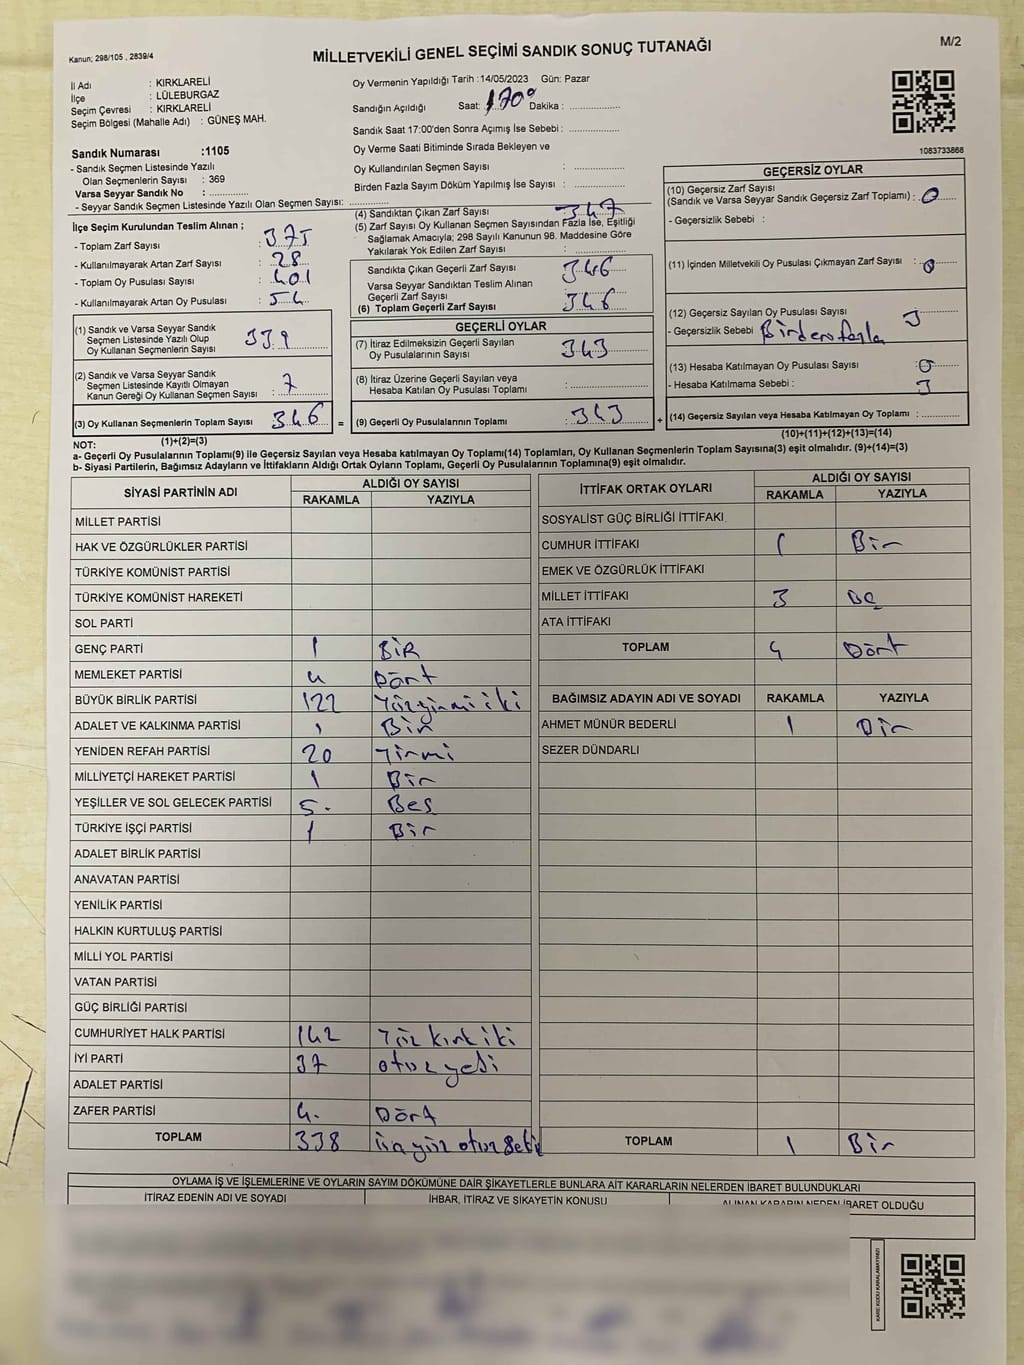 Kanun; 298/105 , 2839/4
MİLLETVEKİLİ GENEL SEÇİMİ SANDIK SONUÇ TUTANAĞI
M/2
İl Adı : KIRKLARELİ
İlçe : LÜLEBURGAZ
Seçim Çevresi : KIRKLARELİ
Seçim Bölgesi (Mahalle Adı) : GÜNEŞ MAH.
Sandık Numarası :1105
- Sandık Seçmen Listesinde Yazılı
Olan Seçmenlerin Sayısı : 369
Varsa Seyyar Sandık No :
- Seyyar Sandık Seçmen Listesinde Yazılı Olan Seçmen Sayısı:
Oy Vermenin Yapıldığı Tarih :14/05/2023 Gün: Pazar
Sandığın Açıldığı Saat: 1700 Dakika :
Sandık Saat 17:00'den Sonra Açımış İse Sebebi :
Oy Verme Saati Bitiminde Sırada Bekleyen ve
Oy Kullandırılan Seçmen Sayısı :
Birden Fazla Sayım Döküm Yapılmış İse Sayısı :
1083733868
İlçe Seçim Kurulundan Teslim Alınan ;
- Toplam Zarf Sayısı : 375
- Kullanılmayarak Artan Zarf Sayısı : 28
- Toplam Oy Pusulası Sayısı : 401
- Kullanılmayarak Artan Oy Pusulası : 54
(1) Sandık ve Varsa Seyyar Sandık
Seçmen Listesinde Yazılı Olup
Oy Kullanan Seçmenlerin Sayısı : 339
(2) Sandık ve Varsa Seyyar Sandık
Seçmen Listesinde Kayıtlı Olmayan
Kanun Gereği Oy Kullanan Seçmen Sayısı : 7
(3) Oy Kullanan Seçmenlerin Toplam Sayısı : 346 =
(4) Sandıktan Çıkan Zarf Sayısı : 347
(5) Zarf Sayısı Oy Kullanan Seçmen Sayısından Fazla İse, Eşitliği
Sağlamak Amacıyla; 298 Sayılı Kanunun 98. Maddesine Göre
Yakılarak Yok Edilen Zarf Sayısı :
Sandıkta Çıkan Geçerli Zarf Sayısı : 346
Varsa Seyyar Sandıktan Teslim Alınan
Geçerli Zarf Sayısı :
(6) Toplam Geçerli Zarf Sayısı : 346
GEÇERLİ OYLAR
(7) İtiraz Edilmeksizin Geçerli Sayılan
Oy Pusulalarının Sayısı : 343
(8) İtiraz Üzerine Geçerli Sayılan veya
Hesaba Katılan Oy Pusulası Toplamı :
(9) Geçerli Oy Pusulalarının Toplamı : 343 +
GEÇERSİZ OYLAR
(10) Geçersiz Zarf Sayısı
(Sandık ve Varsa Seyyar Sandık Geçersiz Zarf Toplamı) : 0
- Geçersizlik Sebebi :
(11) İçinden Milletvekili Oy Pusulası Çıkmayan Zarf Sayısı : 0
(12) Geçersiz Sayılan Oy Pusulası Sayısı : 3
- Geçersizlik Sebebi : Birden fazla
(13) Hesaba Katılmayan Oy Pusulası Sayısı : 0
- Hesaba Katılmama Sebebi : 3
(14) Geçersiz Sayılan veya Hesaba Katılmayan Oy Toplamı :
NOT: (1)+(2)=(3)
(10)+(11)+(12)+(13)=(14)
a- Geçerli Oy Pusulalarının Toplamı(9) ile Geçersiz Sayılan veya Hesaba katılmayan Oy Toplamı(14) Toplamları, Oy Kullanan Seçmenlerin Toplam Sayısına(3) eşit olmalıdır. (9)+(14)=(3)
b- Siyasi Partilerin, Bağımsız Adayların ve İttifakların Aldığı Ortak Oyların Toplamı, Geçerli Oy Pusulalarının Toplamına(9) eşit olmalıdır.
SİYASİ PARTİNİN ADI
ALDIĞI OY SAYISI
RAKAMLA YAZIYLA
MİLLET PARTİSİ
HAK VE ÖZGÜRLÜKLER PARTİSİ
TÜRKİYE KOMÜNİST PARTİSİ
TÜRKİYE KOMÜNİST HAREKETİ
SOL PARTİ
GENÇ PARTİ 1 BİR
MEMLEKET PARTİSİ 4 Dört
BÜYÜK BİRLİK PARTİSİ 122 Yüzyirmi iki
ADALET VE KALKINMA PARTİSİ 1 Bir
YENİDEN REFAH PARTİSİ 20 Yirmi
MİLLİYETÇİ HAREKET PARTİSİ 1 Bir
YEŞİLLER VE SOL GELECEK PARTİSİ 5. Beş
TÜRKİYE İŞÇİ PARTİSİ 1 Bir
ADALET BİRLİK PARTİSİ
ANAVATAN PARTİSİ
YENİLİK PARTİSİ
HALKIN KURTULUŞ PARTİSİ
MİLLİ YOL PARTİSİ
VATAN PARTİSİ
GÜÇ BİRLİĞİ PARTİSİ
CUMHURİYET HALK PARTİSİ 142 Yüz kırk iki
İYİ PARTİ 37 otuz yedi
ADALET PARTİSİ
ZAFER PARTİSİ 4. Dört
TOPLAM 338
İTTİFAK ORTAK OYLARI
ALDIĞI OY SAYISI
RAKAMLA YAZIYLA
SOSYALİST GÜÇ BİRLİĞİ İTTİFAKI
CUMHUR İTTİFAKI 1 Bir
EMEK VE ÖZGÜRLÜK İTTİFAKI
MİLLET İTTİFAKI 3
ATA İTTİFAKI
TOPLAM 4 Dört
BAĞIMSIZ ADAYIN ADI VE SOYADI RAKAMLA YAZIYLA
AHMET MÜNÜR BEDERLİ 1 Bir
SEZER DÜNDARLI
TOPLAM 1 Bir
OYLAMA İŞ VE İŞLEMLERİNE VE OYLARIN SAYIM DÖKÜMÜNE DAİR ŞİKAYETLERLE BUNLARA AİT KARARLARIN NELERDEN İBARET BULUNDUKLARI
İTİRAZ EDENİN ADI VE SOYADI
İHBAR, İTİRAZ VE ŞİKAYETİN KONUSU
ALINAN KARARIN NEDEN İBARET OLDUĞU
KARE KODU KARALAMAYINIZ!